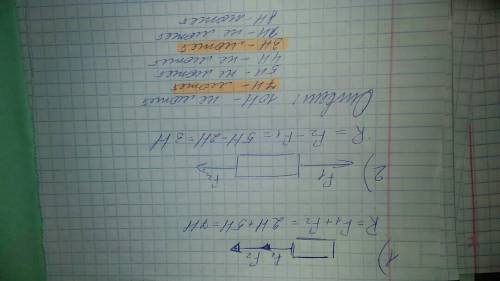 1)
F₁ F₂
R = F₁ + F₂ = 2H + 5H = 7H
2)
F₁ F₂
R = F₂ - F₁ = 5H - 2H = 3H
Ответ:
10H - не может
7H - может
5H - не может
4H - не может
3H - может
2H - не может
8H - может